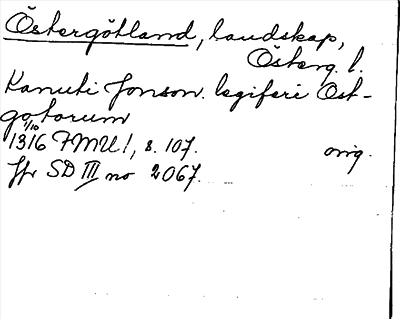 Östergötland, landskap,
Österg. l.
Kanuti Jonson. legiferi Ost-
gotorum
1/10
1316 FMU 1, s. 107. orig.
Jfr SD III no 2067.